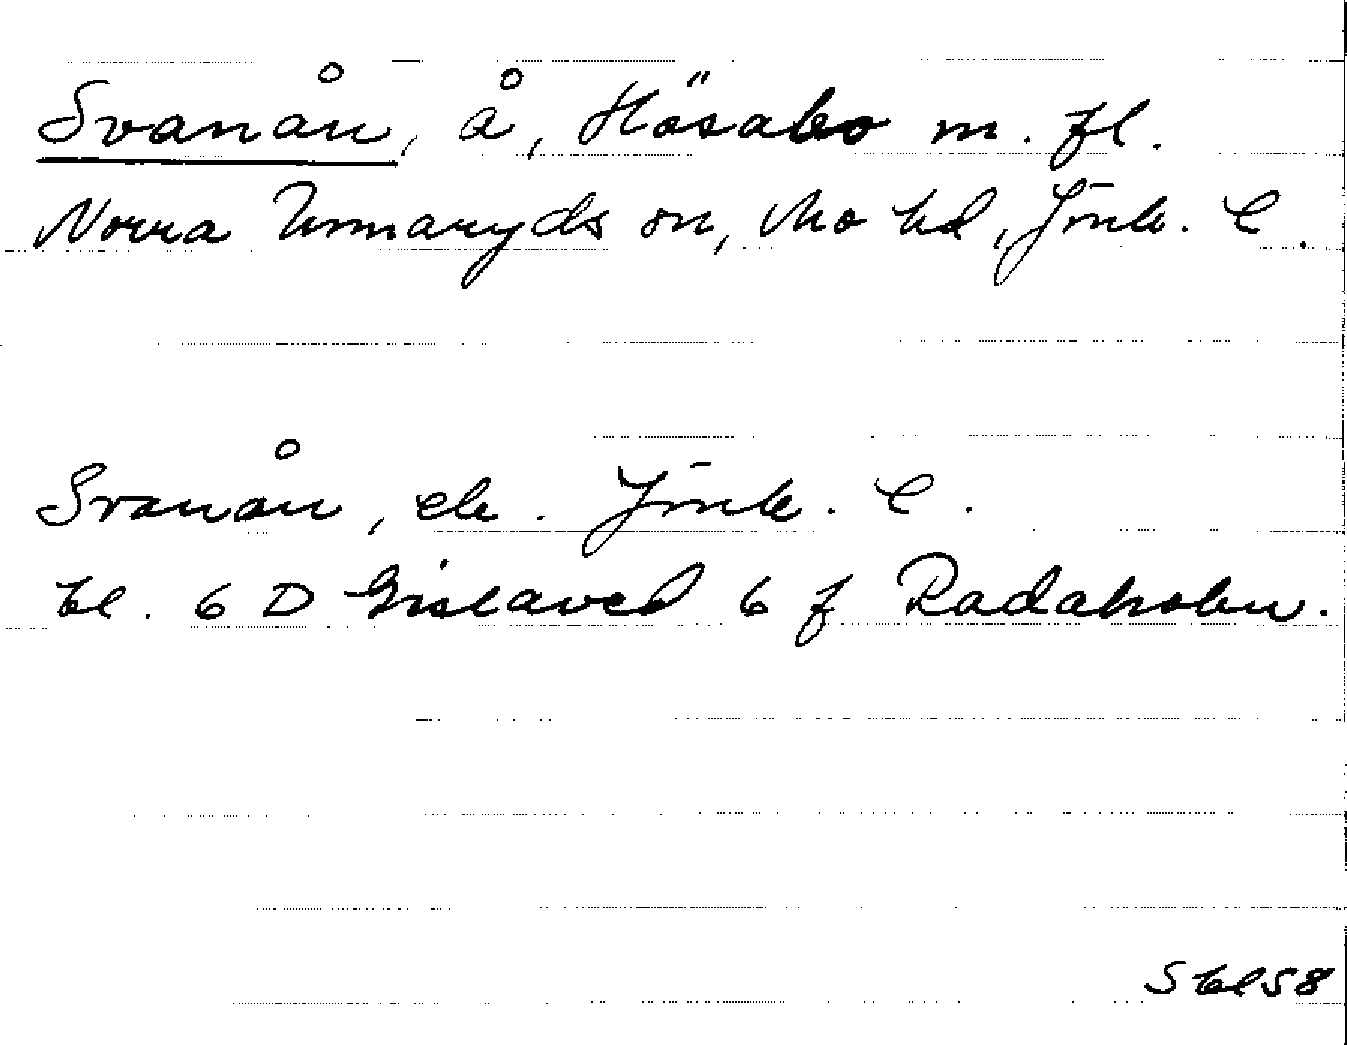 Svanån, å, Hösabo m. fl.
Norra Unnaryds sn, Mo hd, Jönk. l.
Svanån, ek. Jönk. l.
bl. 6 D Gislaved 6 f Radaholm.
S bl 58